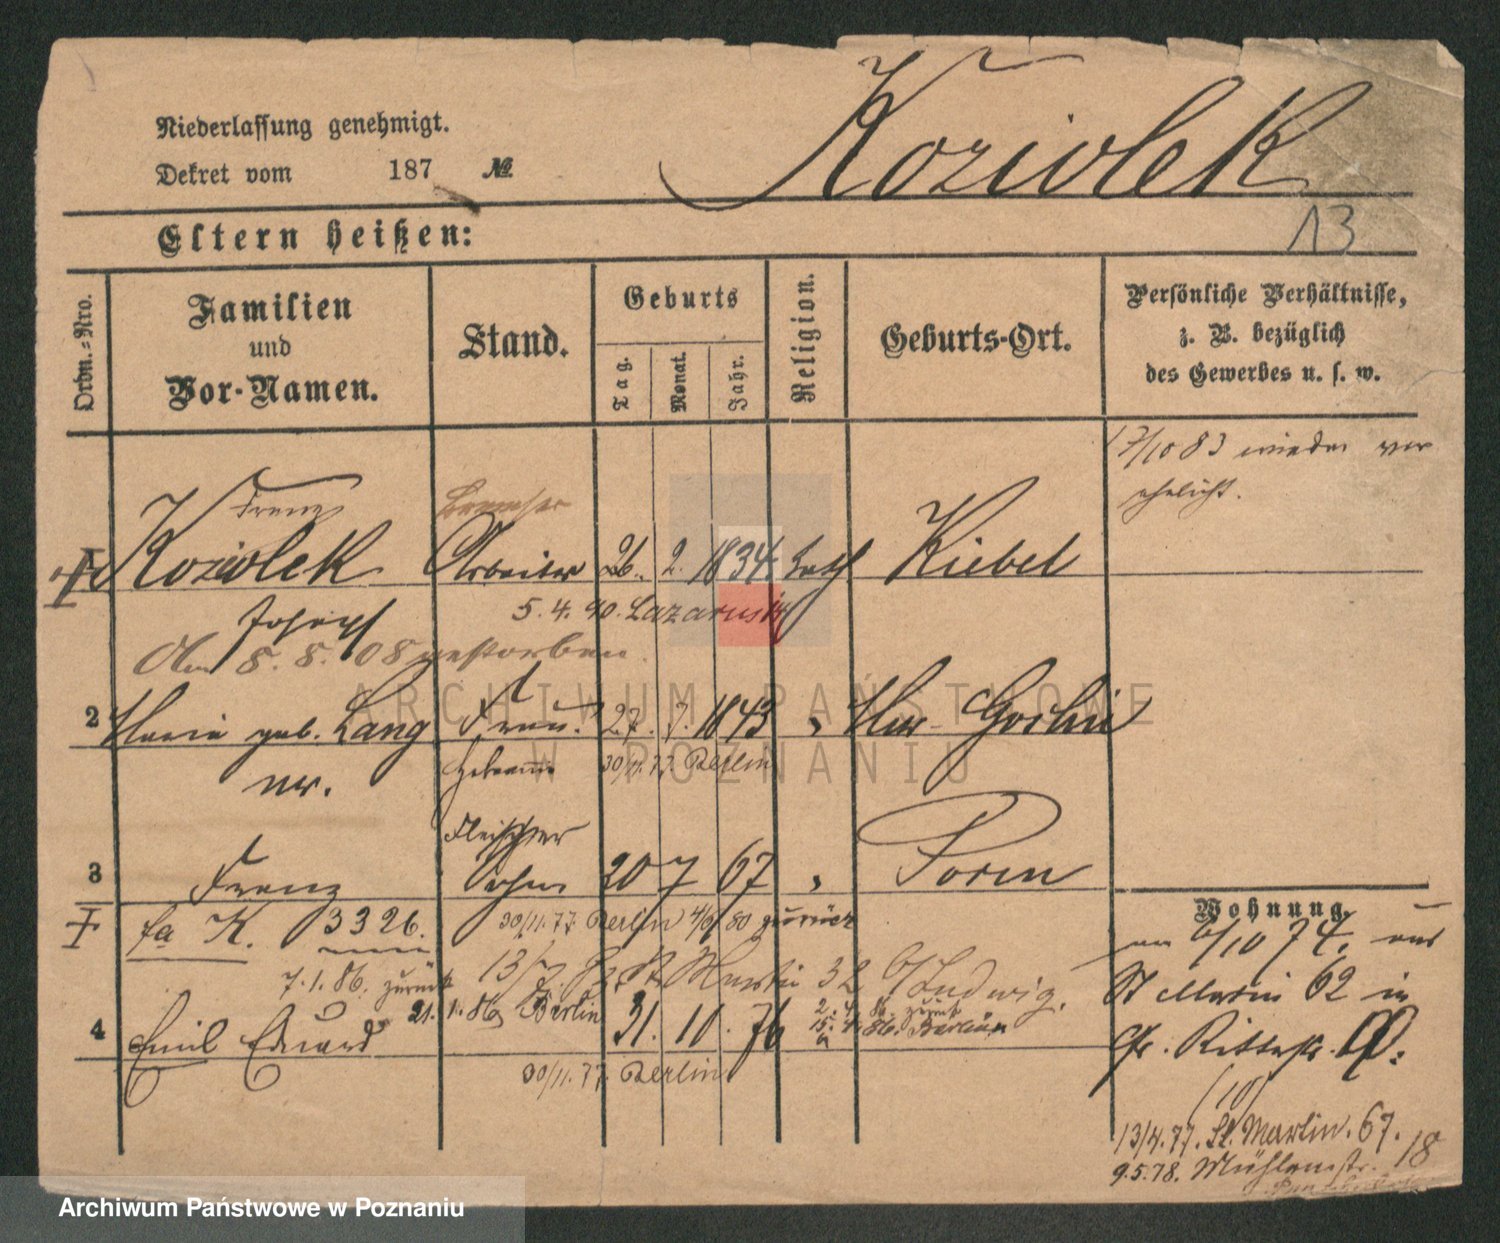 Niederlassung genehmigt.
Dekret vom 187 №
Koziolek
13
Eltern heißen:
Ordn.-Nro.
Familien
und
Vor-Namen.
Stand.
Geburts
Tag.
Monat.
Jahr.
Religion.
Geburts-Ort.
Persönliche Verhältnisse,
z. B. bezüglich
des Gewerbes u. s. w.
17/10 83 wieder ver
ehelicht.
Franz
Koziolek Arbeiter 26. 2. 1834 kath Kiebel
Joseph 5. 4. 90. Lazarus
Am 8. 8. 08 gestorben.
2 Maria geb. Lang Frau 27. 7. 1843 "
30/11. 77 Berlin
Fleischer
3 Franz Sohn 20 7 67 " Posen
fa K. 3326. 30/11. 77 Berlin 80 zurück
7. 1. 86. zurück St Martin 32 Ludwig.
21. 1. 86 Berlin
4 Emil Eduard 31. 10. 76
30/11. 77 Berlin
Wohnung.
am 6/10 74, aus
St Martin 62 in
Gr. Ritterstr.
(10)
13/4. 77. St. Martin. 67.
9. 5. 78. Mühlenstr. 18
ARCHIWUM PAŃSTWOWE
W POZNANIU
Archiwum Państwowe w Poznaniu